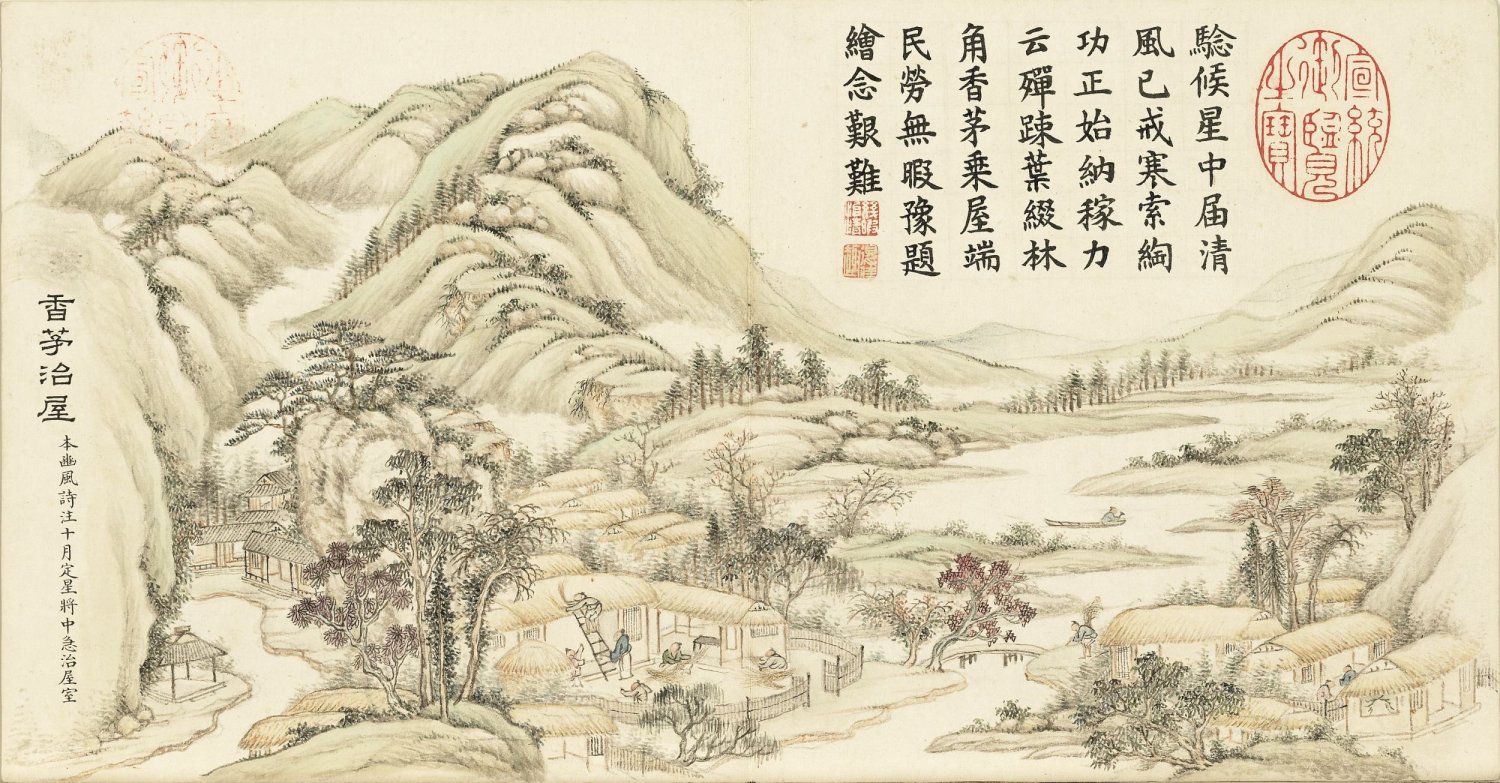 驗候星中届清
風已戒寒索綯
功正始納稼力
云殫踈葉綴林
角香茅乘屋端
民勞無暇豫題
繪念艱難
宣統御覽之寶
香茅治屋
本豳風詩注十月定星將中急治屋室